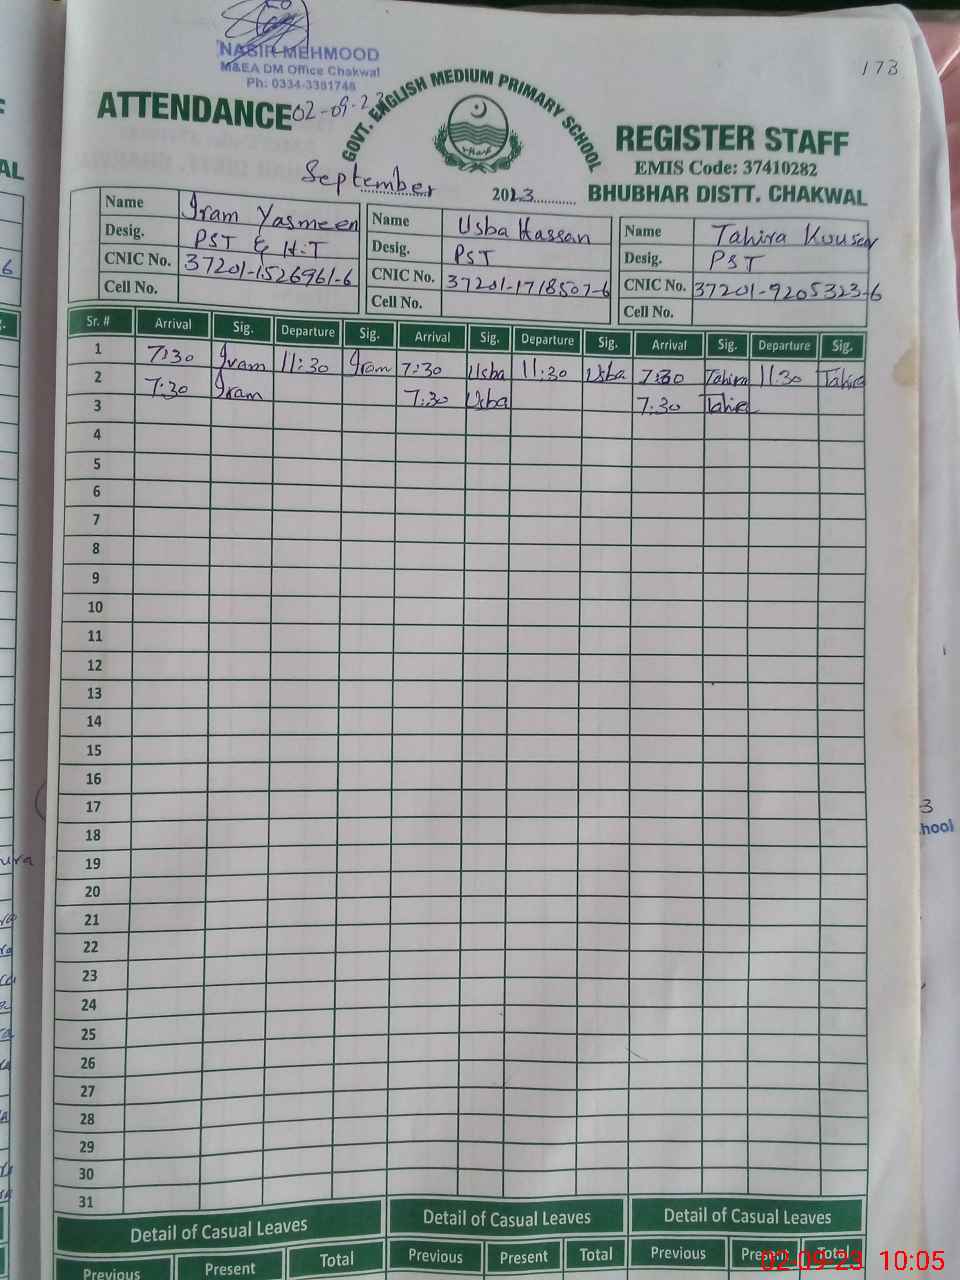 NASIR MEHMOOD
M&EA DM Office Chakwal
Ph: 0334-3381748
173
ATTENDANCE 02-09-23
GOVT. ENGLISH MEDIUM PRIMARY SCHOOL
REGISTER STAFF
EMIS Code: 37410282
September 2023
BHUBHAR DISTT. CHAKWAL
Name Iram Yasmeen Name Usba Hassan Name Tahira Kousar
Desig. PST & H.T Desig. PST Desig. PST
CNIC No. 37201-1526961-6 CNIC No. 37201-1718507-6 CNIC No. 37201-9205323-6
Cell No. Cell No. Cell No.
Sr. # Arrival Sig. Departure Sig. Arrival Sig. Departure Sig. Arrival Sig. Departure Sig.
1 7:30 Iram 11:30 Iram 7:30 Usba 11:30 Usba 7:30 Tahira 11:30 Tahira
2 7:30 Iram 7:30 Usba 7:30 Tahira
3
4
5
6
7
8
9
10
11
12
13
14
15
16
17
18
19
20
21
22
23
24
25
26
27
28
29
30
31
Detail of Casual Leaves Detail of Casual Leaves Detail of Casual Leaves
Previous Present Total Previous Present Total Previous Present Total
02-09-23 10:05